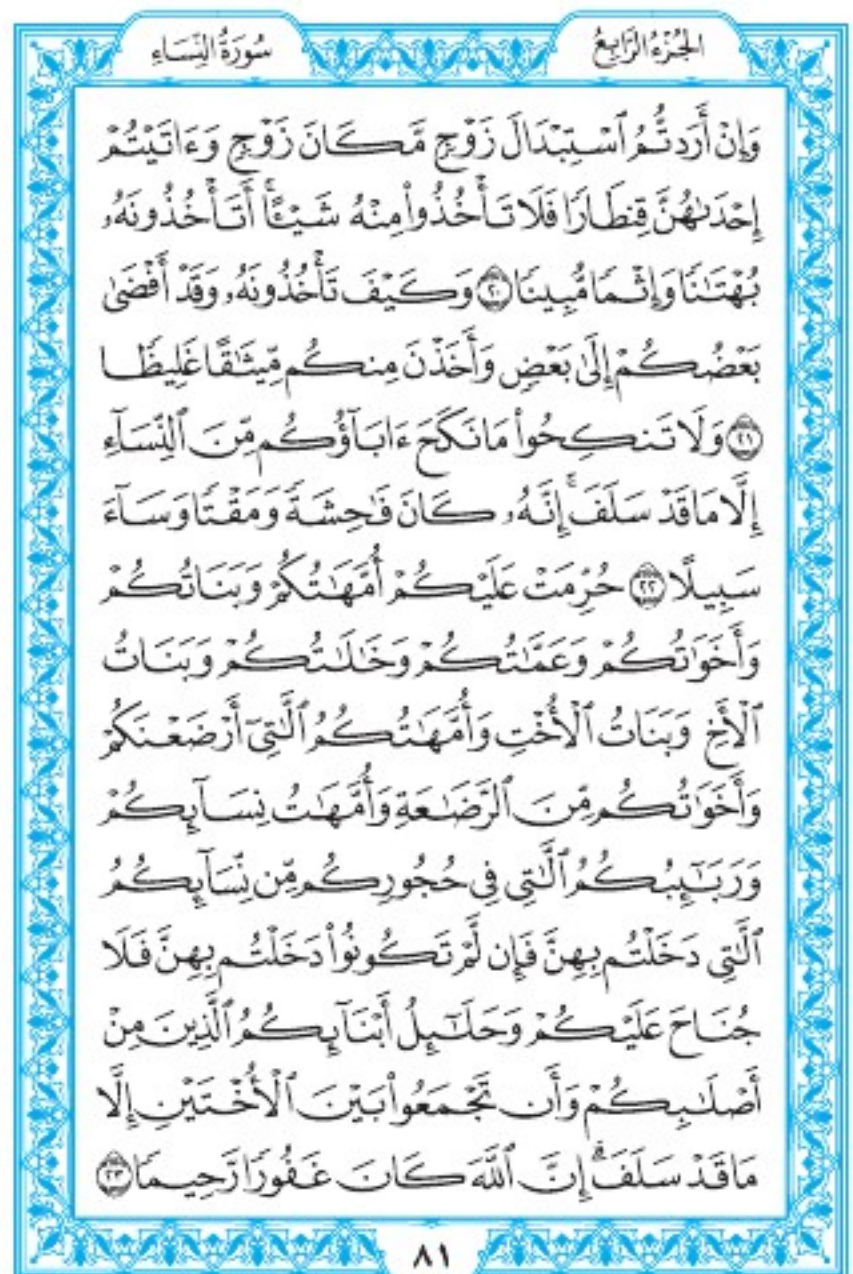 الجُزْءُ الرَّابِعُ سُورَةُ النِّسَاءِ
وَإِنْ أَرَدتُّمُ ٱسْتِبْدَالَ زَوْجٍ مَّكَانَ زَوْجٍ وَءَاتَيْتُمْ
إِحْدَىٰهُنَّ قِنطَارًا فَلَا تَأْخُذُوا۟ مِنْهُ شَيْـًٔا ۚ أَتَأْخُذُونَهُۥ
بُهْتَٰنًا وَإِثْمًا مُّبِينًا ٢٠ وَكَيْفَ تَأْخُذُونَهُۥ وَقَدْ أَفْضَىٰ
بَعْضُكُمْ إِلَىٰ بَعْضٍ وَأَخَذْنَ مِنكُم مِّيثَٰقًا غَلِيظًا
٢١ وَلَا تَنكِحُوا۟ مَا نَكَحَ ءَابَآؤُكُم مِّنَ ٱلنِّسَآءِ
إِلَّا مَا قَدْ سَلَفَ ۚ إِنَّهُۥ كَانَ فَٰحِشَةً وَمَقْتًا وَسَآءَ
سَبِيلًا ٢٢ حُرِّمَتْ عَلَيْكُمْ أُمَّهَٰتُكُمْ وَبَنَاتُكُمْ
وَأَخَوَٰتُكُمْ وَعَمَّٰتُكُمْ وَخَٰلَٰتُكُمْ وَبَنَاتُ
ٱلْأَخِ وَبَنَاتُ ٱلْأُخْتِ وَأُمَّهَٰتُكُمُ ٱلَّٰتِىٓ أَرْضَعْنَكُمْ
وَأَخَوَٰتُكُم مِّنَ ٱلرَّضَٰعَةِ وَأُمَّهَٰتُ نِسَآئِكُمْ
وَرَبَٰٓئِبُكُمُ ٱلَّٰتِى فِى حُجُورِكُم مِّن نِّسَآئِكُمُ
ٱلَّٰتِى دَخَلْتُم بِهِنَّ فَإِن لَّمْ تَكُونُوا۟ دَخَلْتُم بِهِنَّ فَلَا
جُنَاحَ عَلَيْكُمْ وَحَلَٰٓئِلُ أَبْنَآئِكُمُ ٱلَّذِينَ مِنْ
أَصْلَٰبِكُمْ وَأَن تَجْمَعُوا۟ بَيْنَ ٱلْأُخْتَيْنِ إِلَّا
مَا قَدْ سَلَفَ ۗ إِنَّ ٱللَّهَ كَانَ غَفُورًا رَّحِيمًا ٢٣
٨١